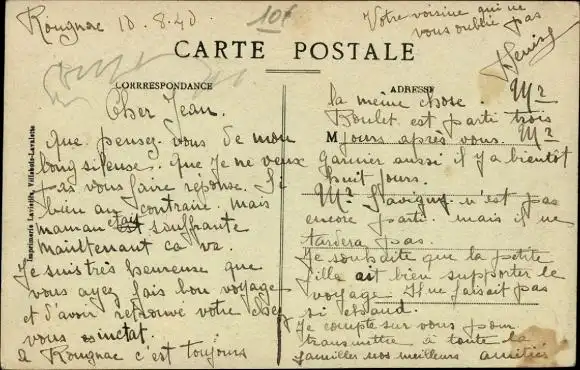 Rougnac 10-8-40
10f
CARTE POSTALE
CORRESPONDANCE
Cher Jean.
que pensez vous de mon
long silense. que je ne veux
pas vous faire réponse. Si
bien au contraire. mais
maman était souffrante
maintenant ca va.
Je suis très heureuse que
vous ayez fais bon voyage
et d'avoir retrouvé votre chez
vous intact.
a Rougnac c'est toujours
Imprimerie Lavieille, Villebois-Lavalette
Votre voisine qui ne
vous oublie pas
Denise
ADRESSE
la même chose. Mr
Boulet est parti trois
M jours après vous. Mr
Garnier aussi il y a bientôt
huit jours.
Mr Savigny n'est pas
encore parti. mais il ne
tardera pas.
Je souhaite que la petite
fille ait bien supporter le
voyage. Il ne faisait pas
si chaud.
Je compte sur vous pour
transmettre à toute la
familler nos meilleurs amitiés